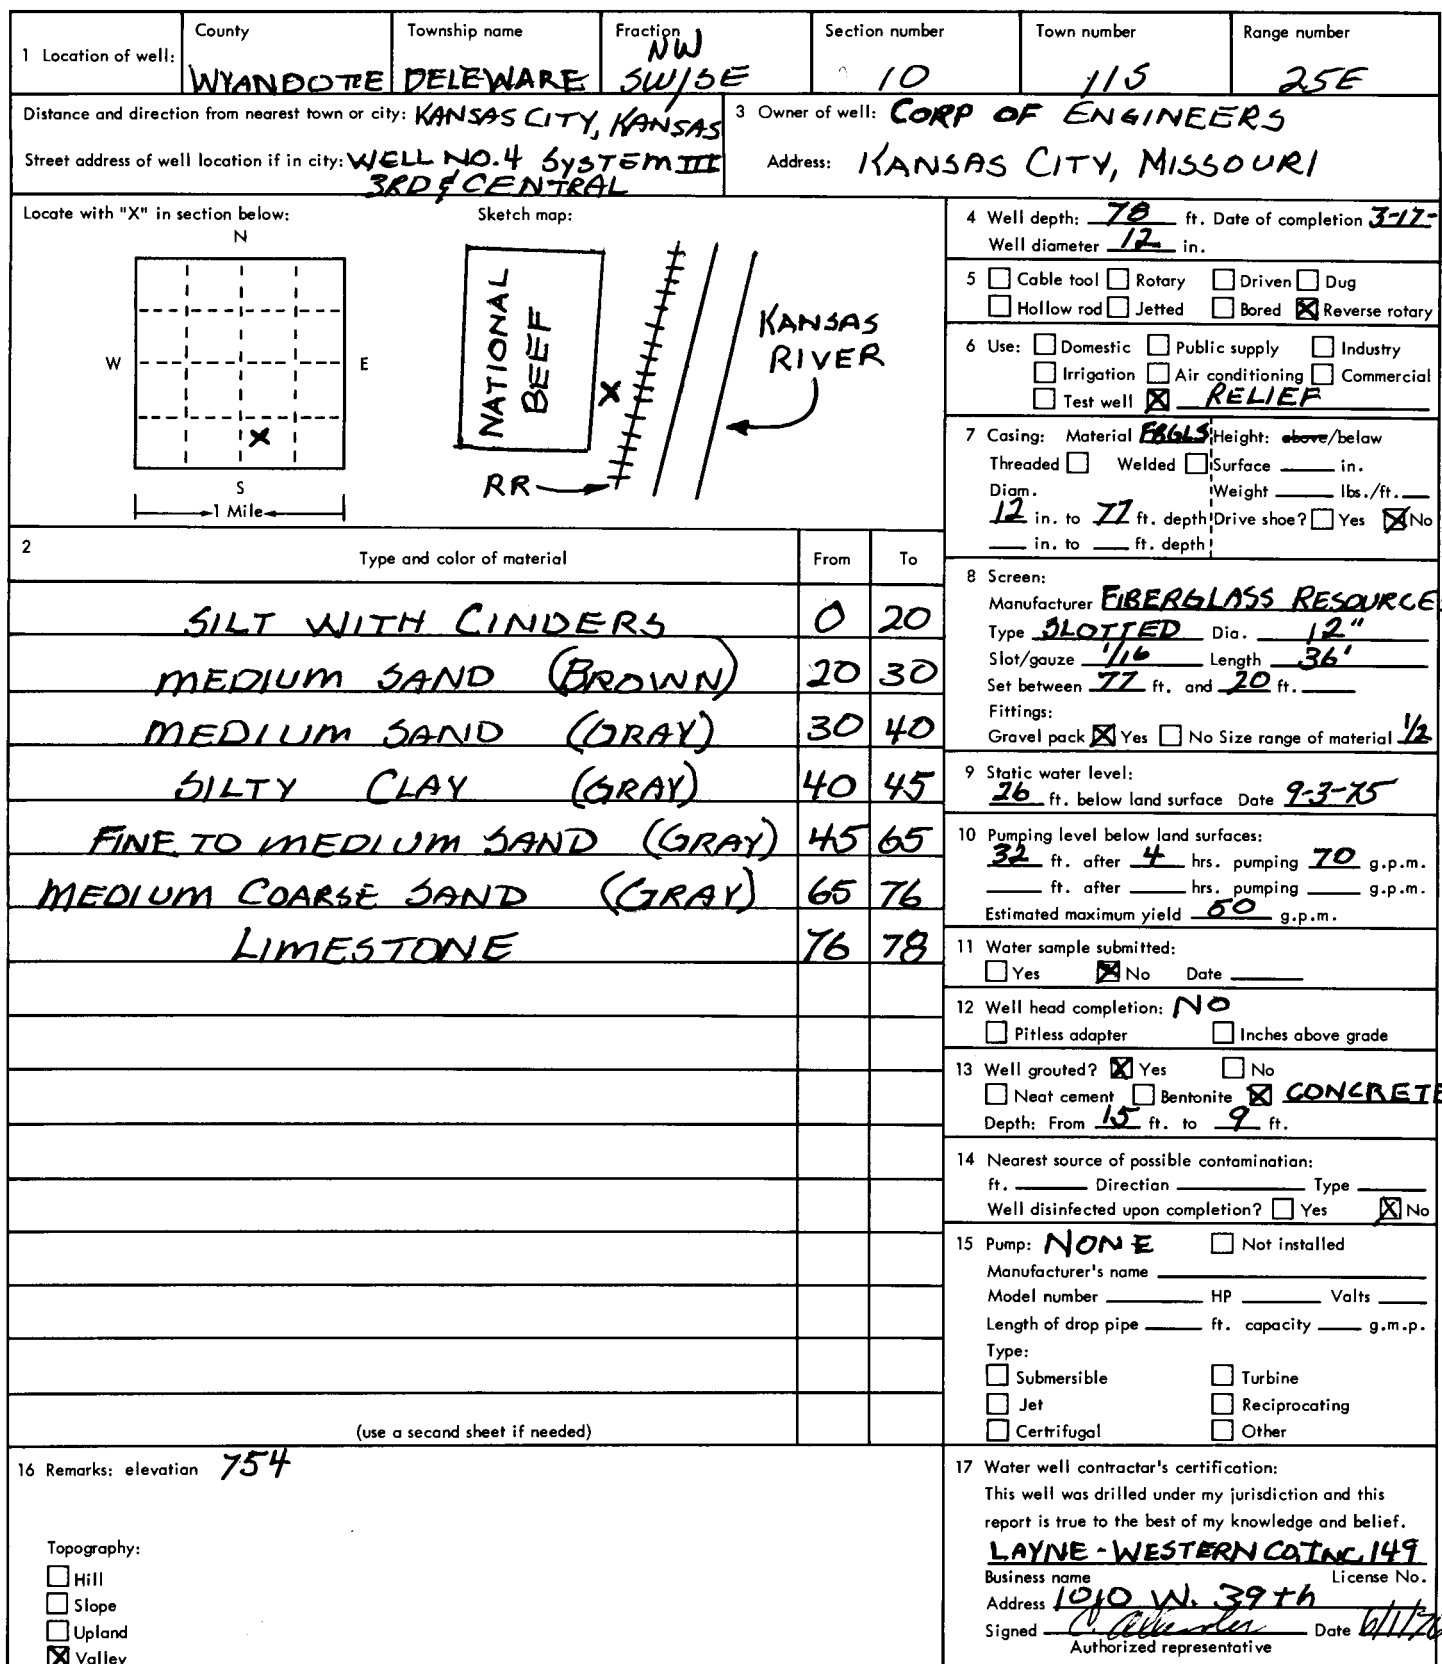 1 Location of well: County WYANDOTTE Township name DELEWARE Fraction NW SW/SE Section number 10 Town number 11S Range number 25E
Distance and direction from nearest town or city: KANSAS CITY, KANSAS
Street address of well location if in city: WELL NO. 4 SYSTEM III
3RD & CENTRAL
3 Owner of well: CORP OF ENGINEERS
Address: KANSAS CITY, MISSOURI
Locate with "X" in section below:
N
W E
X
S
1 Mile
Sketch map:
NATIONAL
BEEF
X
RR
KANSAS
RIVER
2 Type and color of material From To
SILT WITH CINDERS 0 20
MEDIUM SAND (BROWN) 20 30
MEDIUM SAND (GRAY) 30 40
SILTY CLAY (GRAY) 40 45
FINE TO MEDIUM SAND (GRAY) 45 65
MEDIUM COARSE SAND (GRAY) 65 76
LIMESTONE 76 78
(use a second sheet if needed)
4 Well depth: 78 ft. Date of completion 3-17-
Well diameter 12 in.
5 Cable tool Rotary Driven Dug
Hollow rod Jetted Bored X Reverse rotary
6 Use: Domestic Public supply Industry
Irrigation Air conditioning Commercial
Test well X RELIEF
7 Casing: Material FBGLS Height: above/below
Threaded Welded Surface in.
Diam. Weight lbs./ft.
12 in. to 77 ft. depth Drive shoe? Yes X No
in. to ft. depth
8 Screen:
Manufacturer FIBERGLASS RESOURCE
Type SLOTTED Dia. 12"
Slot/gauze 1/16 Length 36'
Set between 77 ft. and 20 ft.
Fittings:
Gravel pack X Yes No Size range of material 1/2
9 Static water level:
26 ft. below land surface Date 9-3-75
10 Pumping level below land surfaces:
32 ft. after 4 hrs. pumping 70 g.p.m.
ft. after hrs. pumping g.p.m.
Estimated maximum yield 50 g.p.m.
11 Water sample submitted:
Yes X No Date
12 Well head completion: NO
Pitless adapter Inches above grade
13 Well grouted? X Yes No
Neat cement Bentonite X CONCRETE
Depth: From 15 ft. to 9 ft.
14 Nearest source of possible contamination:
ft. Direction Type
Well disinfected upon completion? Yes X No
15 Pump: NONE Not installed
Manufacturer's name
Model number HP Valts
Length of drop pipe ft. capacity g.m.p.
Type:
Submersible Turbine
Jet Reciprocating
Certrifugal Other
16 Remarks: elevation 754
Topography:
Hill
Slope
Upland
X Valley
17 Water well contractar's certification:
This well was drilled under my jurisdiction and this
report is true to the best of my knowledge and belief.
LAYNE-WESTERN CO. INC. 149
Business name License No.
Address 1010 W. 39th
Signed Date 6/1/76
Authorized representative